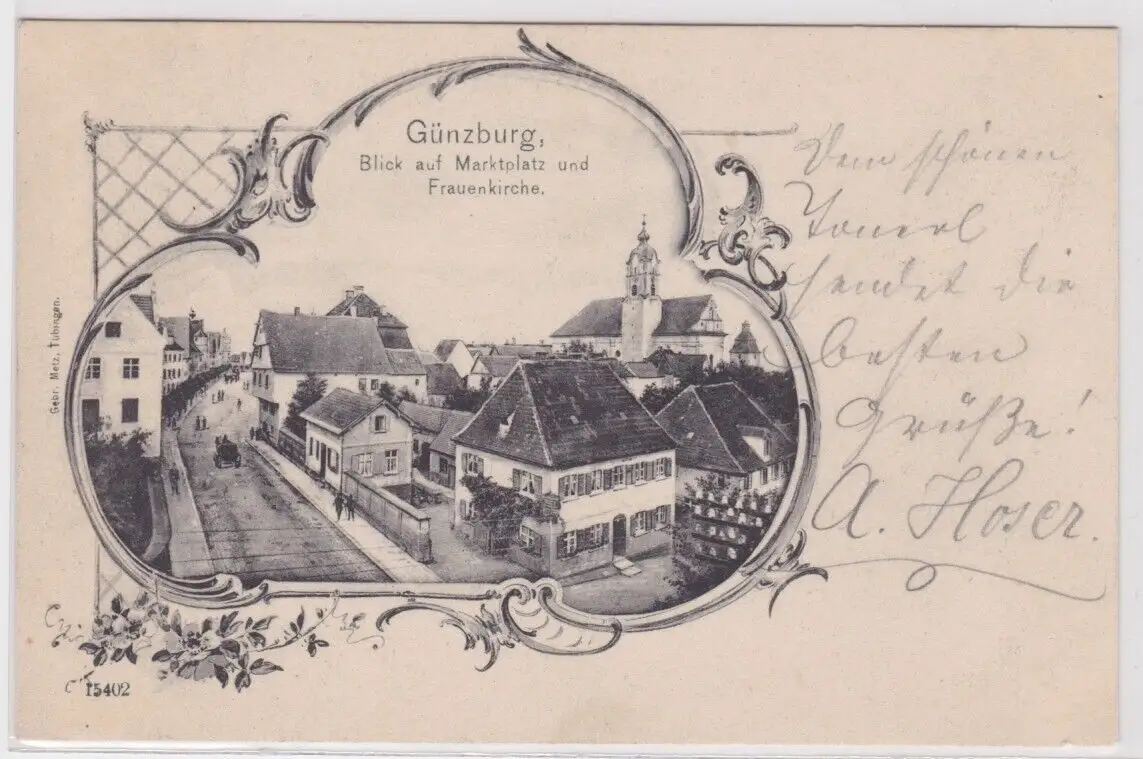 Günzburg,
Blick auf Marktplatz und
Frauenkirche.
Gebr. Metz, Tübingen.
Dem schönen
sendet die
besten
Grüße!
A. Hoser.
15402